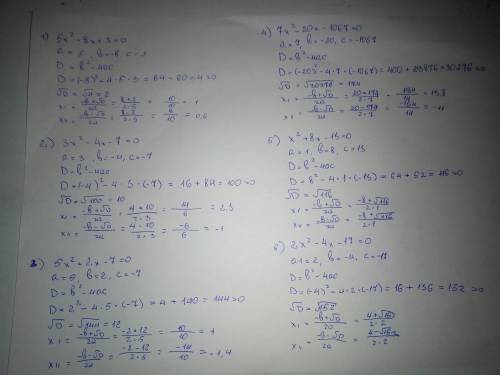 1) 5x² - 8x + 3 = 0
a = 5, b = -8, c = 3
D = b² - 4ac
D = (-8)² - 4·5·3 = 64 - 60 = 4 > 0
√D = √4 = 2
x₁ = (-b+√D)/2a = (8+2)/(2·5) = 10/10 = 1
x₂ = (-b-√D)/2a = (8-2)/(2·5) = 6/10 = 0,6
2) 3x² - 4x - 7 = 0
a = 3, b = -4, c = -7
D = b² - 4ac
D = (-4)² - 4·3·(-7) = 16 + 84 = 100 > 0
√D = √100 = 10
x₁ = (-b+√D)/2a = (4+10)/(2·3) = 14/6 = 2,3
x₂ = (-b-√D)/2a = (4-10)/(2·3) = -6/6 = -1
3) 5x² + 2x - 7 = 0
a = 5, b = 2, c = -7
D = b² - 4ac
D = 2² - 4·5·(-7) = 4 + 140 = 144 > 0
√D = √144 = 12
x₁ = (-b+√D)/2a = (-2+12)/(2·5) = 10/10 = 1
x₂ = (-b-√D)/2a = (-2-12)/(2·5) = -14/10 = -1,4
4) 7x² - 20x - 1067 = 0
a = 7, b = -20, c = -1067
D = b² - 4ac
D = (-20)² - 4·7·(-1067) = 400 + 29876 = 30276 > 0
√D = √30276 = 174
x₁ = (-b+√D)/2a = (20+174)/(2·7) = 194/14 = 13,8
x₂ = (-b-√D)/2a = (20-174)/(2·7) = -154/14 = -11
5) x² + 8x - 13 = 0
a = 1, b = 8, c = 13
D = b² - 4ac
D = 8² - 4·1·(-13) = 64 + 52 = 116 > 0
√D = √116
x₁ = (-b+√D)/2a = (-8+√116)/(2·1)
x₂ = (-b-√D)/2a = (-8-√116)/(2·1)
6) 2x² - 4x - 17 = 0
a = 2, b = -4, c = 17
D = b² - 4ac
D = (-4)² - 4·2·(-17) = 16 + 136 = 152 > 0
√D = √152
x₁ = (-b+√D)/2a = (4+√152)/(2·2)
x₂ = (-b-√D)/2a = (4-√152)/(2·2)